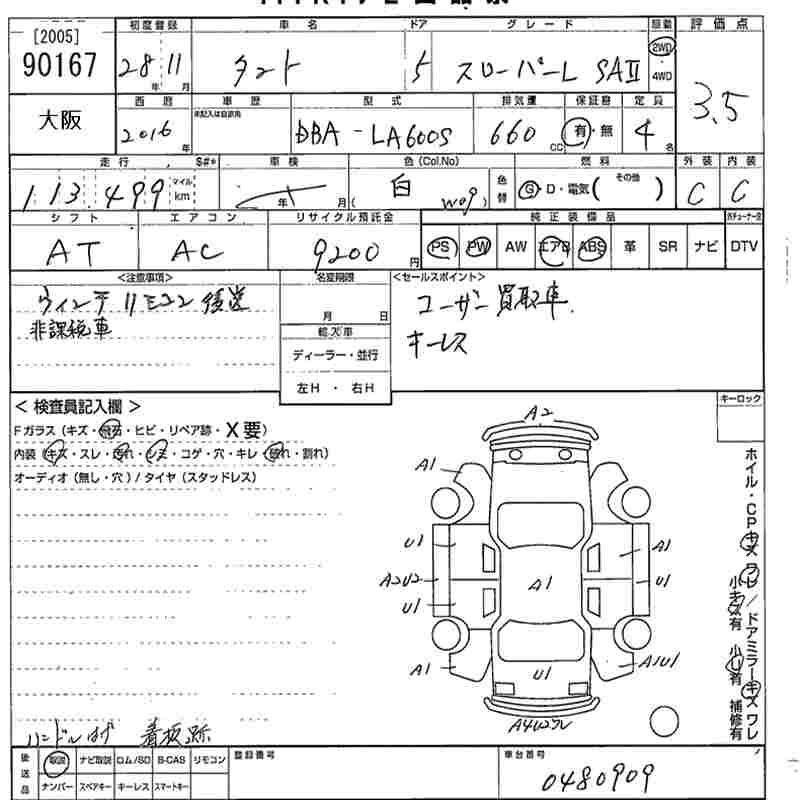 [2005]
90167
大阪
初度登録 車名 ドア グレード 駆動 評価点
28年 11月 タント 5 スローパーL SAII 2WD 4WD 3.5
西暦 車歴 型式 排気量 保証書 定員
2016年 未記入は自家用 DBA-LA600S 660cc 有・無 4名
走行 $#* 車検 色(Col.No) 燃料 外装 内装
113,499 マイル km 年 月 ( 白 W09 ) 色替 G・D・電気( その他 ) C C
シフト エアコン リサイクル預託金 純正装備品
AT AC 9200円 PS PW AW エアB ABS 革 SR ナビ DTV
<注意事項> 名変期限 <セールスポイント>
リモコン後送 月 日 ユーザー買取車
非課税車 輸入車 キーレス
ディーラー・並行
左H ・ 右H
< 検査員記入欄 > キーロック
Fガラス (キズ・飛石・ヒビ・リペア跡・X要)
内装 (キズ・スレ・汚れ・シミ・コゲ・穴・キレ・破れ・割れ)
オーディオ (無し・穴) / タイヤ (スタッドレス)
A2
A1
U1 A1
A2U2 A1 U1
U1
A1 U1 A1U1
ホイル・CPキズ ワレ / ドアミラーキズ ワレ
小キズ有 小U有 補修有
ハンドルはげ 看板跡
後送品 取説 ナビ取説 ロム/SD B-CAS リモコン 登録番号 車台番号
ナンバー スペアキー キーレス スマートキー 0480909